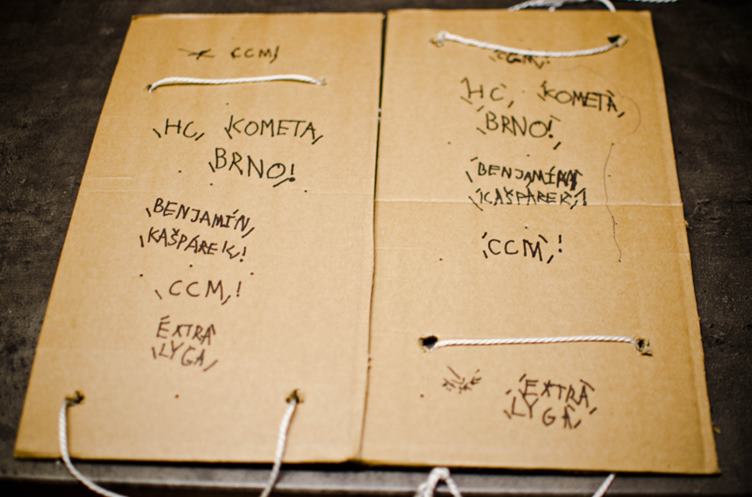 CCM!
HC, KOMETA,
BRNO!
BENJAMÍN,
KAŠPÁREK,!
CCM,!
EXTRA
LYGA,
CCM,!
HC, KOMETA,
BRNO!
BENJAMÍN
KAŠPÁREK,!
CCM,!
EXTRA
LYGA,